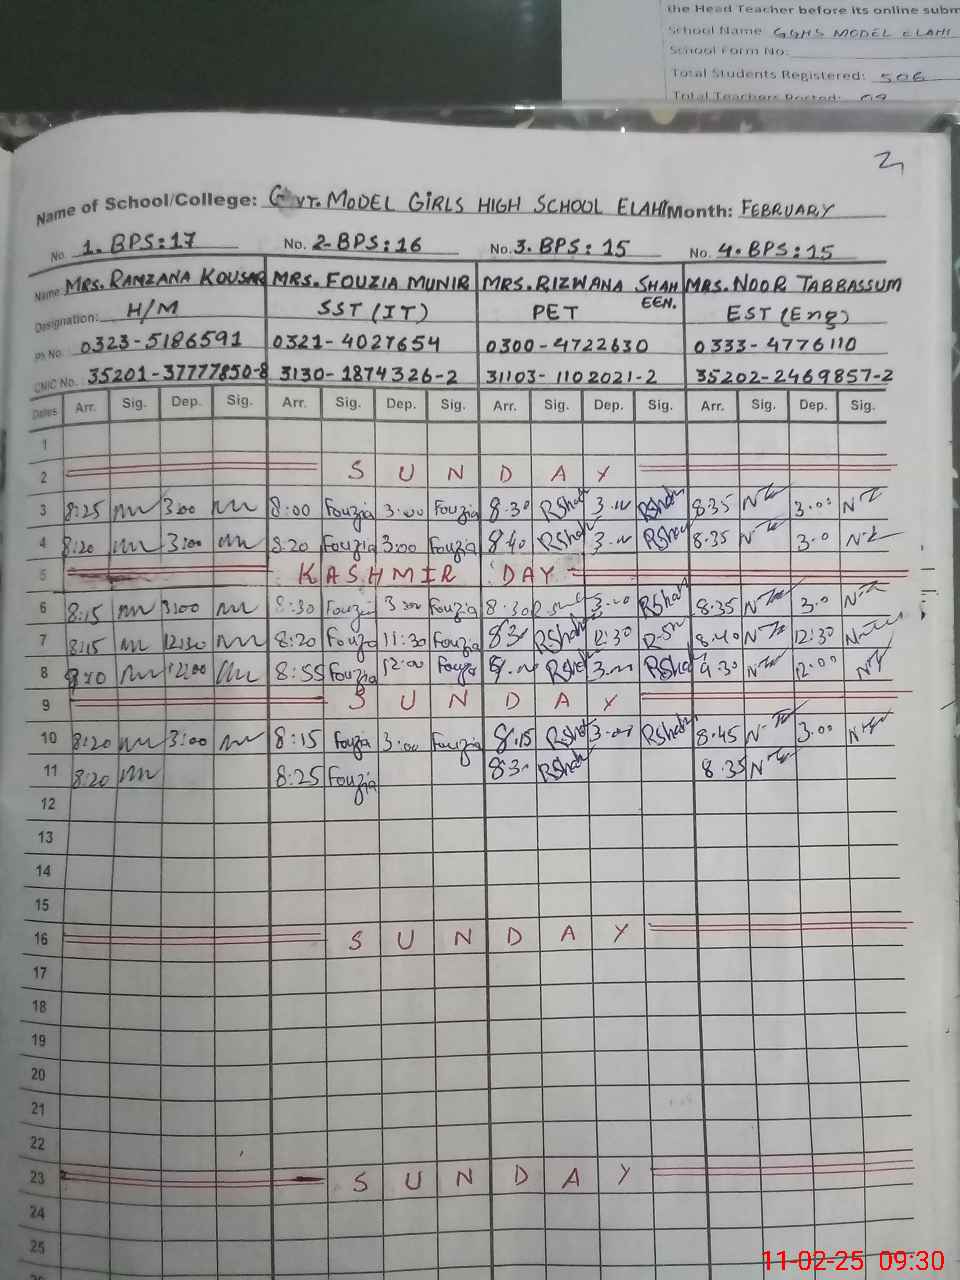 the Head Teacher before its online subm
School Name GGHS MODEL ELAHI
School Form No:
Total Students Registered: 506
Total Teachers Posted: 09
2
Name of School/College: Govt. MODEL GIRLS HIGH SCHOOL ELAHI Month: FEBRUARY
No. 1. BPS:17 No. 2. BPS:16 No. 3. BPS: 15 No. 4. BPS:15
Name MRS. RAMZANA KOUSAR MRS. FOUZIA MUNIR MRS. RIZWANA SHAHEEN. MRS. NOOR TABBASSUM
Designation: H/M SST (IT) PET EST (Eng)
Ph No. 0323-5186591 0321-4027654 0300-4722630 0333-4776110
CNIC No. 35201-37777850-8 3130-1874326-2 31103-1102021-2 35202-2469857-2
Dates Arr. Sig. Dep. Sig. Arr. Sig. Dep. Sig. Arr. Sig. Dep. Sig. Arr. Sig. Dep. Sig.
1
2 SUNDAY
3 8:25 3:00 8:00 Fouzia 3:00 Fouzia 8.30 RShah 3.00 RShah 8.35 3.00
4 8:20 3:00 8:20 Fouzia 3:00 Fouzia 8.40 RShah 3.00 RShah 8.35 3.0
5 KASHMIR DAY
6 8:15 3:00 8:30 Fouzia 3:00 Fouzia 8.30 3.00 RShah 8.35 3.0
7 8:15 12:30 8:20 Fouzia 11:30 Fouzia 8.30 RShah 12:30 8.40 12:30
8 12:00 8:55 Fouzia 12:00 Fouzia RShah 3.00 RShah 9.30 12.00
9 SUNDAY
10 8:20 3:00 8:15 Fouzia 3:00 Fouzia 8.15 RShah 3.00 RShah 8.45 3.00
11 8:20 8:25 Fouzia 8.30 RShah 8.35
12
13
14
15
16 SUNDAY
17
18
19
20
21
22
23 SUNDAY
24
25
11-02-25 09:30